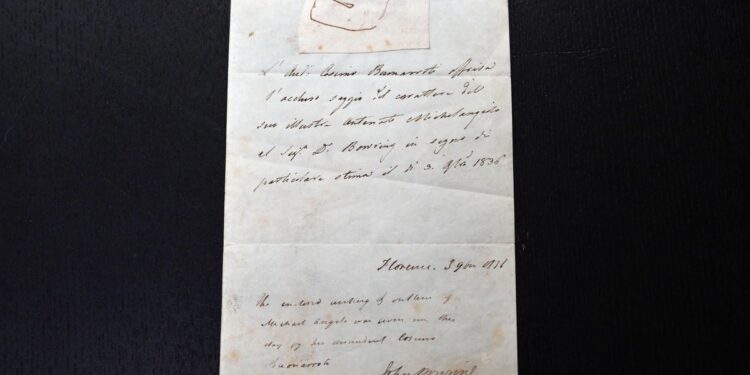 L'Aud. Cosimo Buonarroti offriva
l'accluso saggio del carattere del
suo illustre antenato Michelangelo
al Sigr. Dr. Bowring in segno di
particolare stima il dì 3. 1836
Florence. 3 1836
The enclosed writing & outline of
Michael Angelo was given me this
day by his descendant Cosimo
Buonarroti
John Bowring